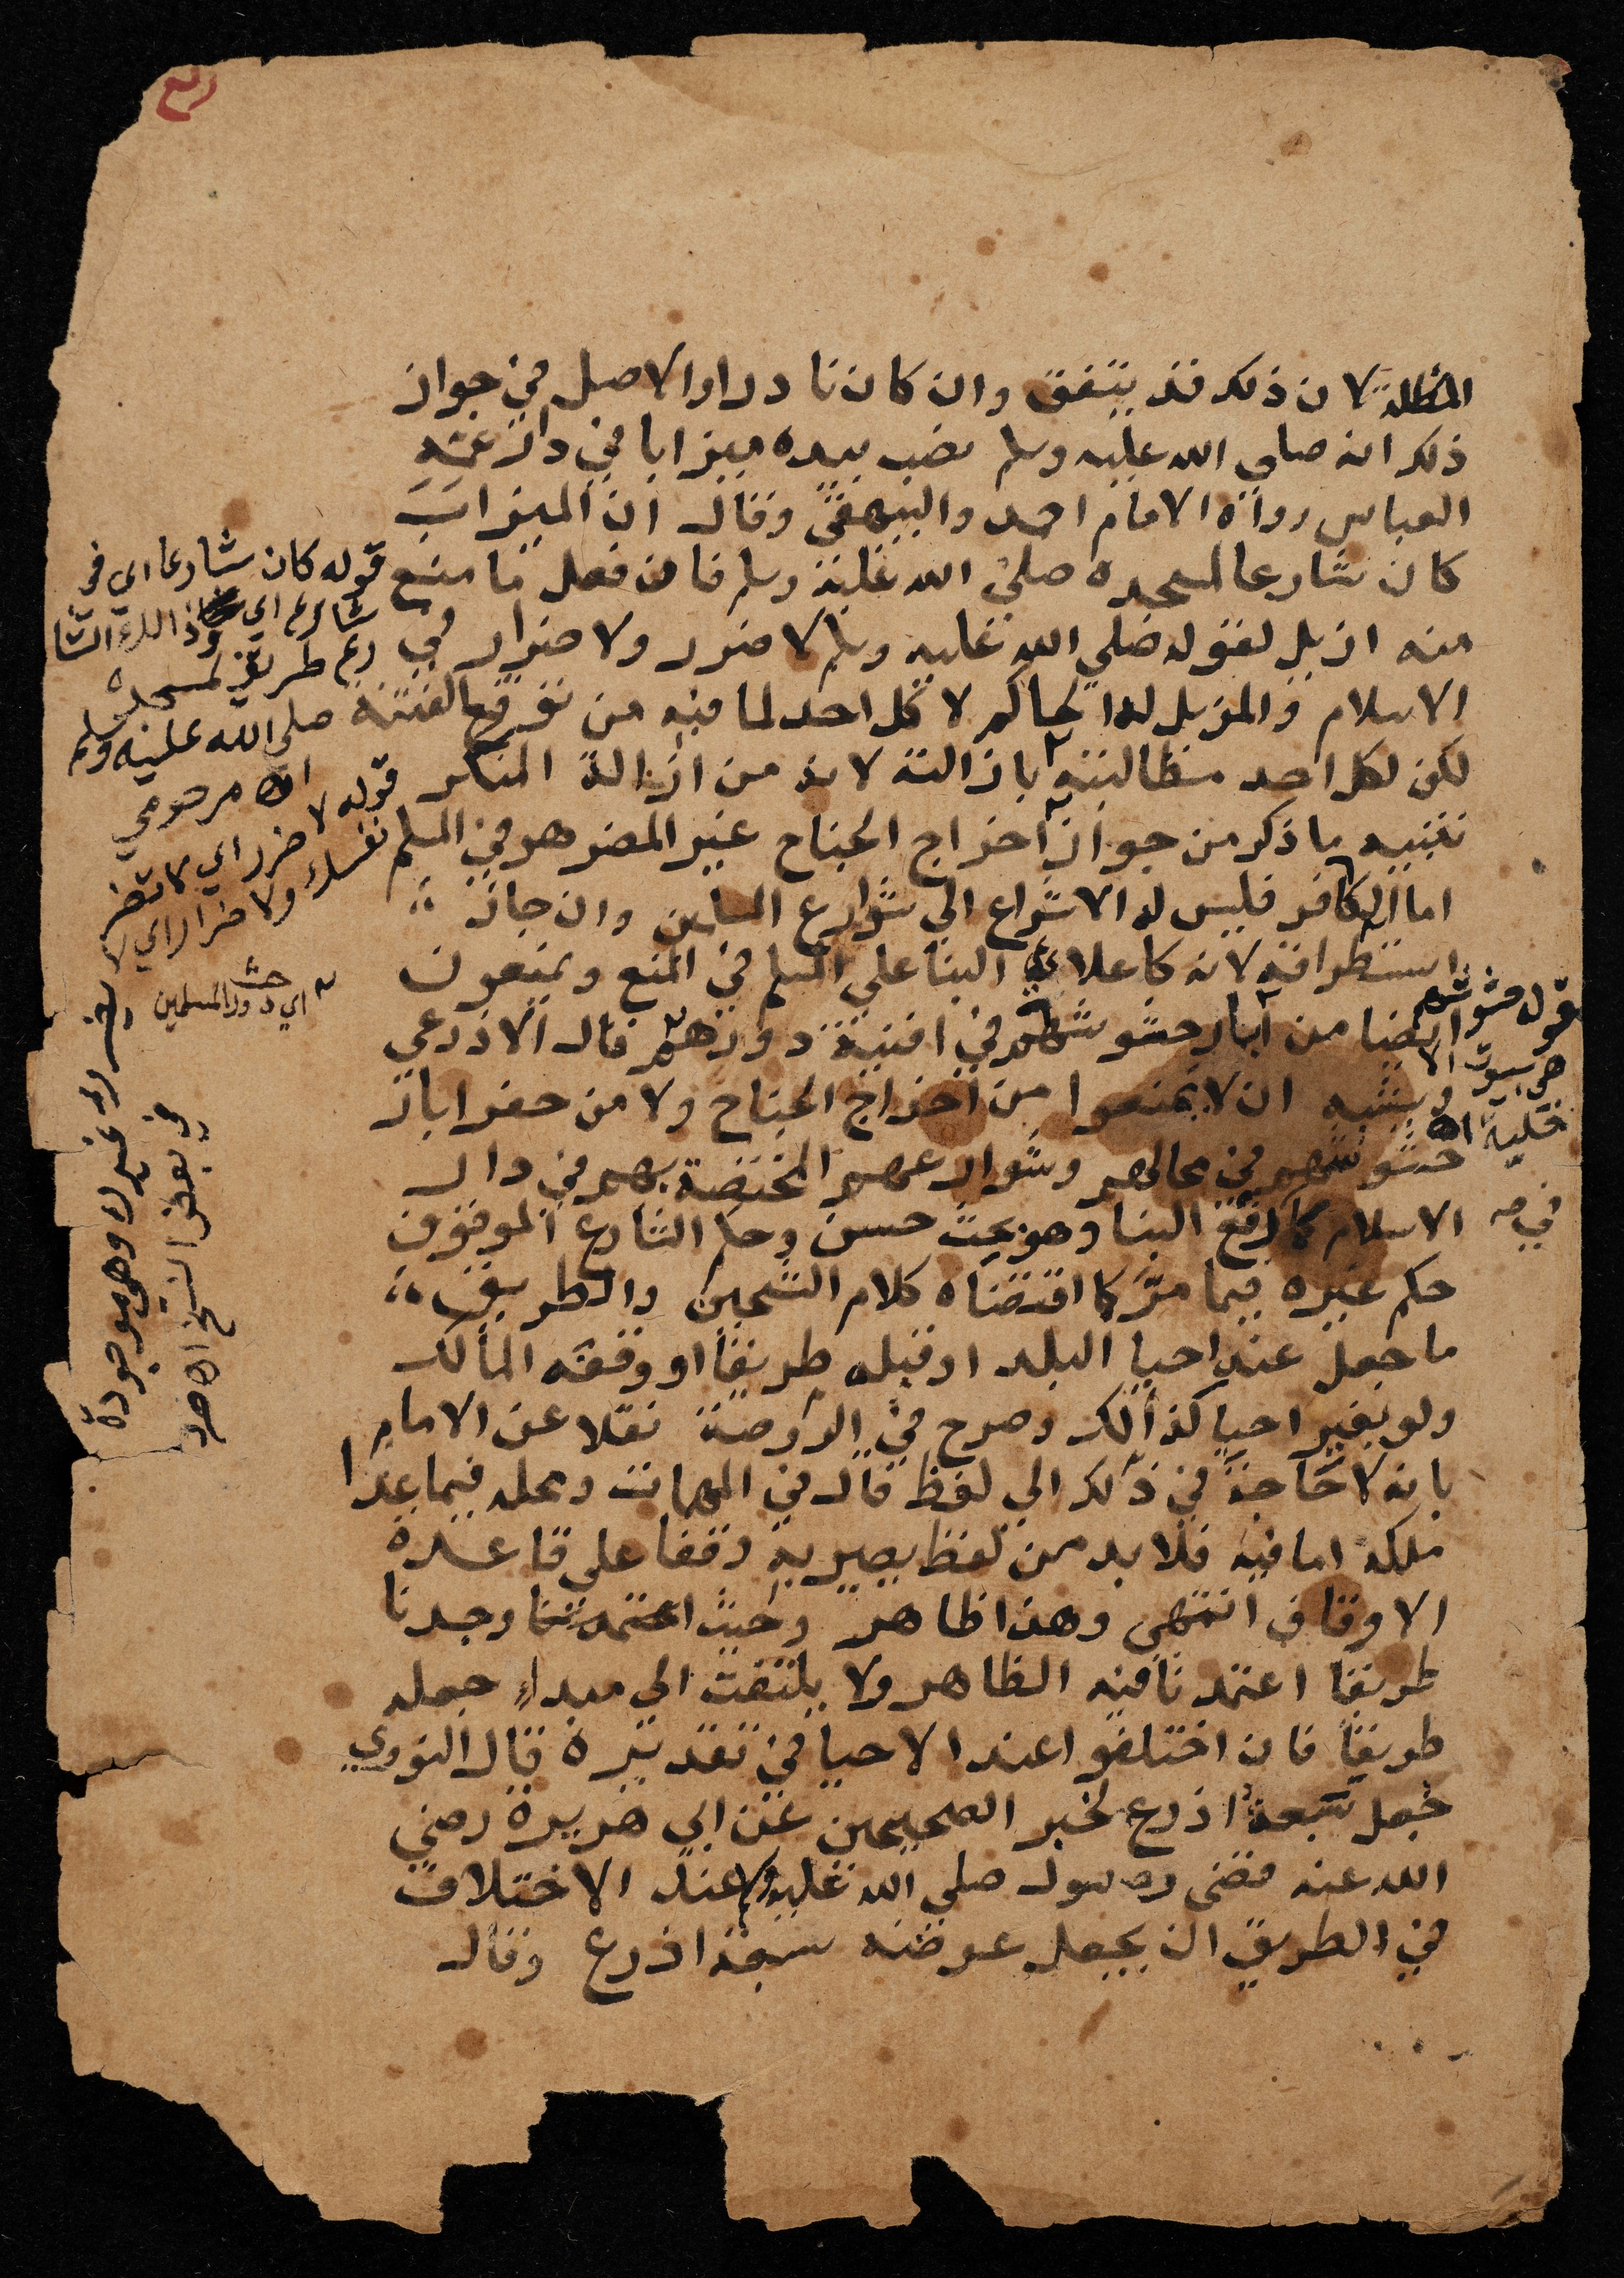 المظلة لان ذلك قد يتفق وان كان نادرا والاصل في جواز
ذلك انه صلي الله عليه وسلم نصب بيده ميزابا في دار عمه
العباس رواه الامام احمد والبيهقي وقال ان الميزاب
كان شارعا لمسجده صلي الله عليه وسلم فان فعل ما منع
منه ازيل لقوله صلي الله عليه وسلم لا ضرر ولا ضرار في
الاسلام والمزيل له الحاكم لا كل احد لما فيه من توقع الفتنة
لكن لكل احد مطالبته بازالته لانه من ازالة المنكر
تنبيه ما ذكر من جواز اخراج الجناح غير المضر هو في المسلم
اما الكافر فليس له الاشراع الي شوارع المسلمين وان جاز
استطراقه لانه كاعلاء البنا علي المسلم في المنع ويمنعون
ايضا من آبار حشوشهم في افنية دورهم قال الاذرعي
ويشبه ان لا يمنعوا من اخراج الجناح ولا من حفر ابار
حشوشهم في محالهم وشوارعهم المختصة بهم في دار
الاسلام كما في رفع البنا وهو بحث حسن وحكم الشارع الموقوف
حكم غيره فيما مر كما اقتضاه كلام الشيخين والطريق
ما جعل عند احيا البلد او قبله طريقا او وقفه المالك
ولو بغير احيا كذالك وصرح في الروضة نقلا عن الامام
بانه لا حاجة في ذلك الي لفظ قال في المهمات ومحله فيما عدا
ملكه اما فيه فلا بد من لفظ يصير به وقفا علي قاعدة
الاوقاف انتهي وهذا ظاهر وحيث وجدنا
طريقا اعتمدنا فيه الظاهر ولا يلتفت الي مبداء جعله
طريقا فان اختلفوا عند الاحيا في تقديره قال النووي
جعل سبعة اذرع لخبر الصحيحين عن ابي هريرة رضي
الله عنه قضي رسول صلي الله عليه وسلم عند الاختلاف
في الطريق ان يجعل عرضه سبعة اذرع وقال
قوله كان شارعا اي في
شارع اي
طريق لمسجده
صلي الله عليه وسلم
اه مرحومي
قوله لا ضرر اي لا تضر
نفسك ولا ضرار اي لا
تضر غيرك وهي موجودة
في بعض النسخ اه
اي دور المسلمين
قوله حشوشهم
هي بيوت الا
خلية اه